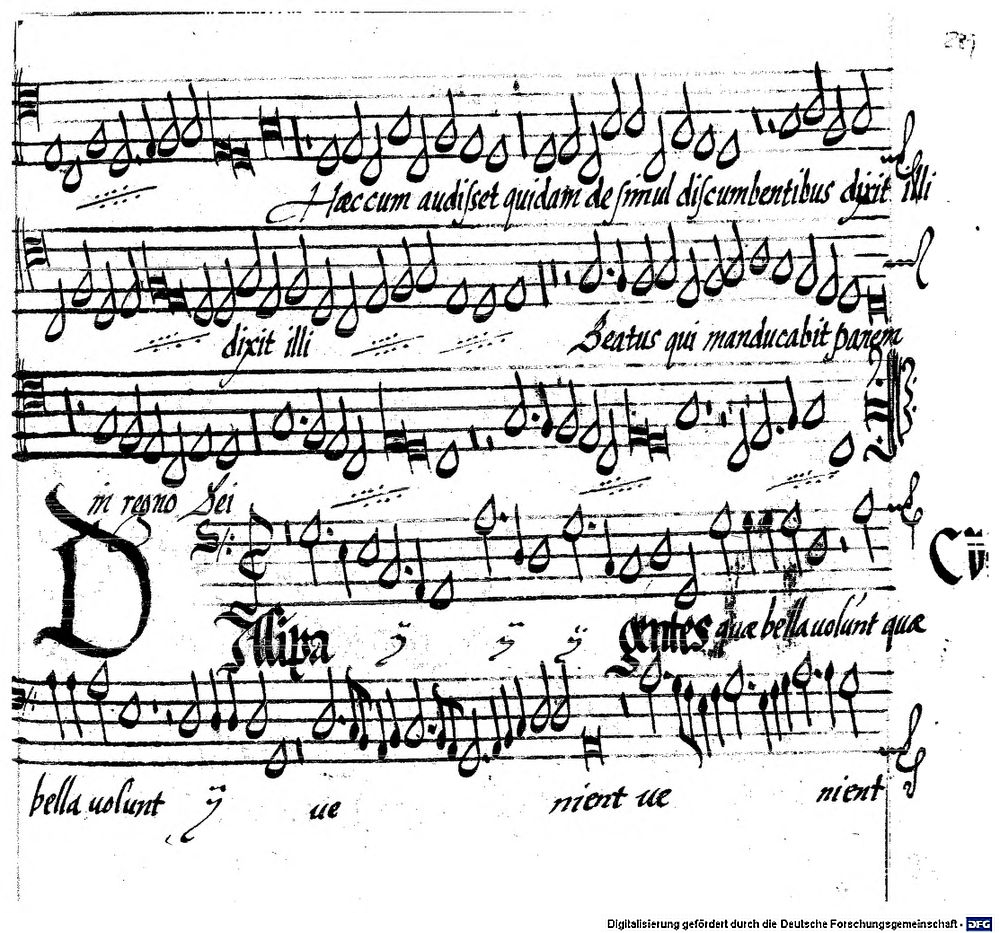 289
Hæc cum audisset quidam de simul discumbentibus dixit illi
dixit illi Beatus qui manducabit panem
in regno Dei
Dissipa ÿ ÿ ÿ gentes quæ bella volunt quæ
bella volunt ÿ ve nient ve nient
Digitalisierung gefördert durch die Deutsche Forschungsgemeinschaft - DFG